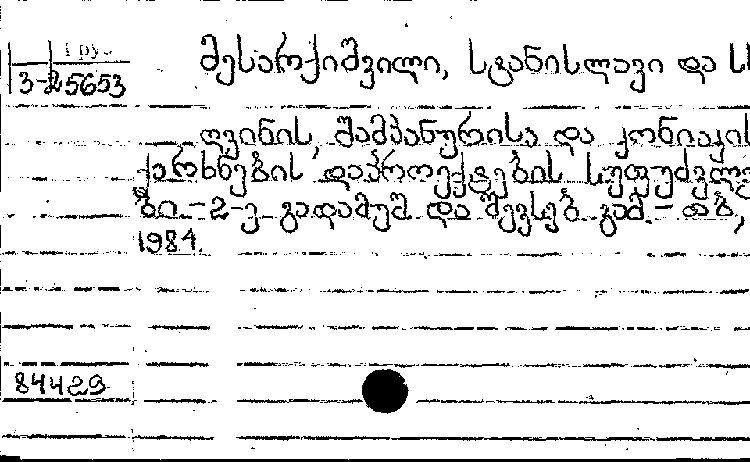 Груз
3-25653
მესარქიშვილი, სტანისლავი და სხ
ღვინის, შამპანურისა და კონიაკის
ქარხნების დაპროექტების საფუძვლე
ბი.-2-ე გადამუშ. და შევსებ. გამ.-თბ.,
1984.
84429